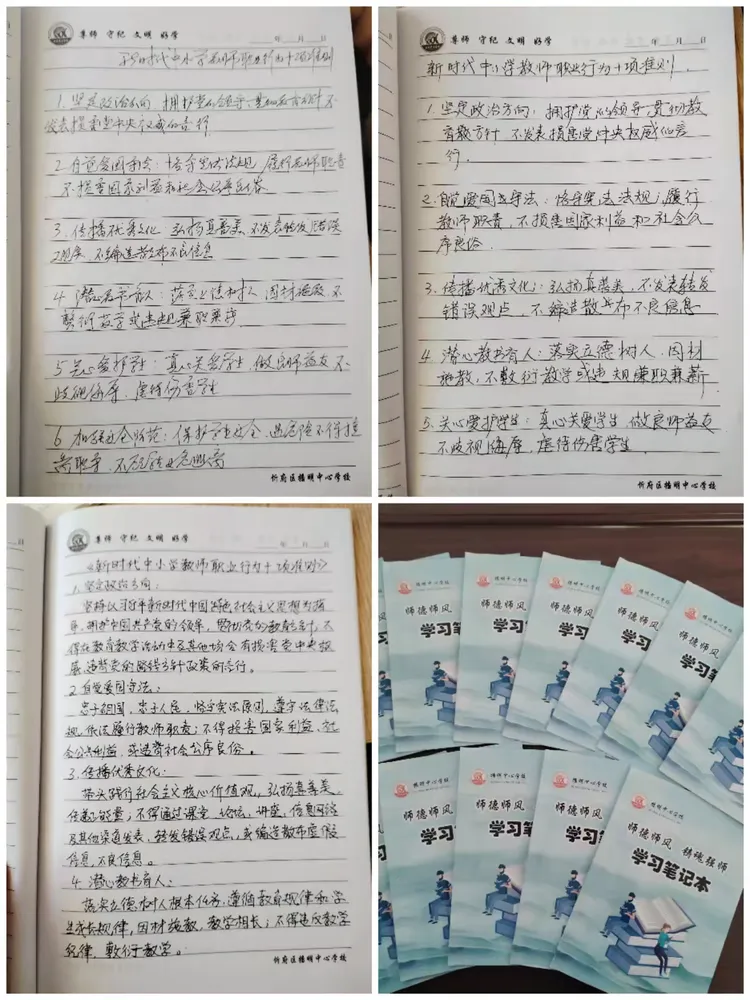 尊师 守纪 文明 好学
年 月 日
新时代中小学教师职业行为十项准则
1. 坚定政治方向 拥护党的领导 贯彻教育方针 不
发表损害党中央权威的言行
2. 自觉爱国守法：恪守宪法法规，履行教师职责
不损害国家利益和社会公序良俗
3. 传播优秀文化 弘扬真善美，不发表转发错误
观点，不编造散布不良信息
4 潜心教书育人：落实立德树人 因材施教 不
敷衍教学或违规兼职兼薪
5 关心爱护学生：真心关爱学生，做良师益友 不
歧视侮辱，虐待伤害学生
6 加强安全防范：保护学生安全，遇危险不得擅
离职守，不
忻府区播明中心学校
尊师 守纪 文明 好学
年 月 日
新时代中小学教师职业行为十项准则
1. 坚定政治方向：拥护党的领导，贯彻教
育教方针，不发表损害党中央权威的言
行。
2. 自觉爱国守法：恪守宪法法规，履行
教师职责，不损害国家利益和社会公
序良俗。
3. 传播优秀文化：弘扬真善美，不发表转发
错误观点，不编造散布不良信息
4. 潜心教书育人：落实立德树人，因材
施教，不敷衍教学或违规兼职兼薪
5. 关心爱护学生：真心关爱学生，做良师益友
不歧视侮辱，虐待伤害学生。
忻府区播明中心学校
尊师 守纪 文明 好学
年 月 日
《新时代中小学教师职业行为十项准则》
1. 坚定政治方向：
坚持以习近平新时代中国特色社会主义思想为指
导，拥护中国共产党的领导，贯彻党的教育方针；不
得在教育教学活动中及其他场合有损害党中央权
威、违背党的路线方针政策的言行。
2. 自觉爱国守法：
忠于祖国，忠于人民，恪守宪法原则，遵守法律法
规，依法履行教师职责；不得损害国家利益、社
会公共利益，或违背社会公序良俗。
3. 传播优秀文化：
带头践行社会主义核心价值观，弘扬真善美，
传递正能量；不得通过课堂、论坛、讲座、信息网络
及其他渠道发表、转发错误观点，或编造散布虚假
信息、不良信息。
4. 潜心教书育人：
落实立德树人根本任务，遵循教育规律和学
生成长规律，因材施教，教学相长；不得违反教学
纪律，敷衍教学。
忻府区播明中心学校
播明中心学校
师德师风
学习笔
播明中心学校
师德师风
学习
播明中心学校
师德师风
学习
播明中心学校
师德师风
学习笔
师德师风
学习笔
播明中心学校
师德师风
学习笔
播明中心学校
师德师风
学习
播明中心学校
师德师风 铸魂强师
学习笔记本